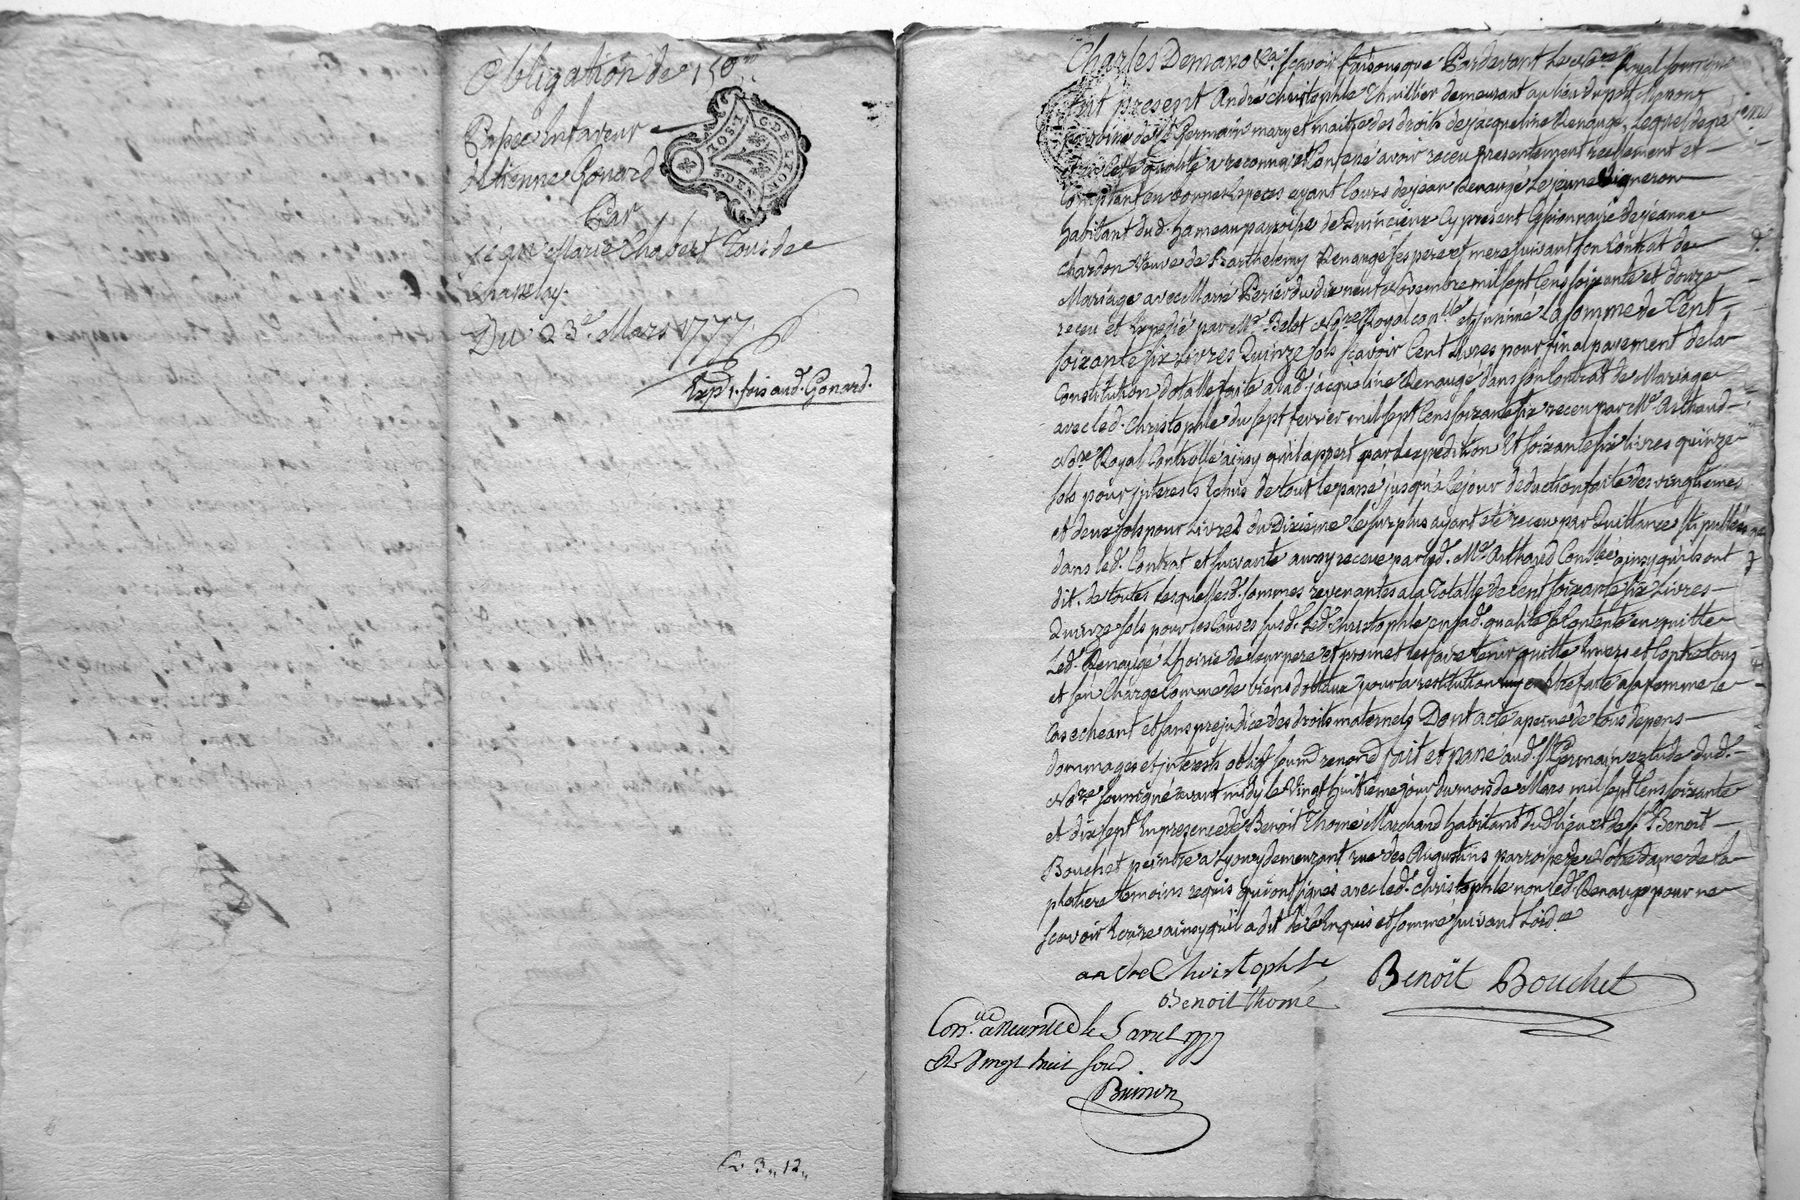 Obligation de 150
Passée en faveur
Etienne Gonard
Par
jean Marie Chabert tous de
Chasselay.
Du 23e. Mars 1777
Exp 1. fois aud. Gonard.
GDE LYON
Charles Demaro scavoir faisons que Pardevant le Nore Royal soussigné
fut present André christophle Thuillier demeurant au lieu du port
parroisse de St Germain mary et maitre des droits de jacqueline Renauge, lequel de gré
cette qualité a reconnu et confessé avoir receu presentement reellement et
Comptant en bonnes Especes ayant Cours de jean Renauge Lejeune Vigneron
habitant dud. hameau parroisse de Quincieux Cy present Cessionnaire de jeanne
chardon veuve de Barthelemy Renauge ses pere et mere suivant son Contrat de
Mariage avec Marie Perier du dix neuf Novembre mil sept Cens soixante et douze
receu et Expedié par Me. Belot Nore Royal la somme de Cent
soixante six Livres Quinze sols scavoir Cent Livres pour final payement de la
Constitution dotalle faite a lad. jacqueline Renauge dans son Contrat de Mariage
avec led. Christophle du sept fevrier mil sept Cens soixante six receu par Me. Arthaud
Nore Royal Controllé ainsy quil appert par Expedition Et soixante six livres quinze
sols pour jnterests Echus de tout le passé jusqu'a Cejour deduction faite des vingtiemes
et deux sols pour Livre du Dixieme le surplus ayant eté receu par Quittance
dans led. Contrat et suivante aussy receue par led. Me. Arthaud Conllée ainsy quils ont
dit. de toutes lesquelles d. sommes revenantes a la Totalle de Cent soixante six Livres
Quinze sols pour les Causes susd. Led. Christophle en sad. qualité se Contente en quitte
Led. Renauge Lhoirie de leur pere et promet les faire tenir quitte Envers et Contre tous
et s'en Charge Comme de biens dottaux pour la restitution en Etre faite a sa femme le
Cas echeant et sans prejudice des droits maternels Dont acte a peine de tous depens
dommages et jnterests oblig soumd renond fait et passé aud. St Germain estude dud.
Nore soussigné avant midy le Vingt huitieme jour du mois de Mars mil sept Cens soixante
et dix sept En presence de Benoit Thomé Marchand habitant dud lieu et de sr Benoit
Bouchet peintre a Lyon y demeurant rue des Augustins parroisse de Notre dame de la
platiere temoins requis qui ont signés avec led. christophle non led. Renauge pour ne
scavoir Ecrire ainsy qu'il a dit de ce Enquis et sommé suivant Lord.ce
andre Christophle
Benoit Bouchet
Benoit thomé
Con.llé a Neuville le 5 avril 1777
R Vingt huit sous
Brimon
Cv 3,, 12,,